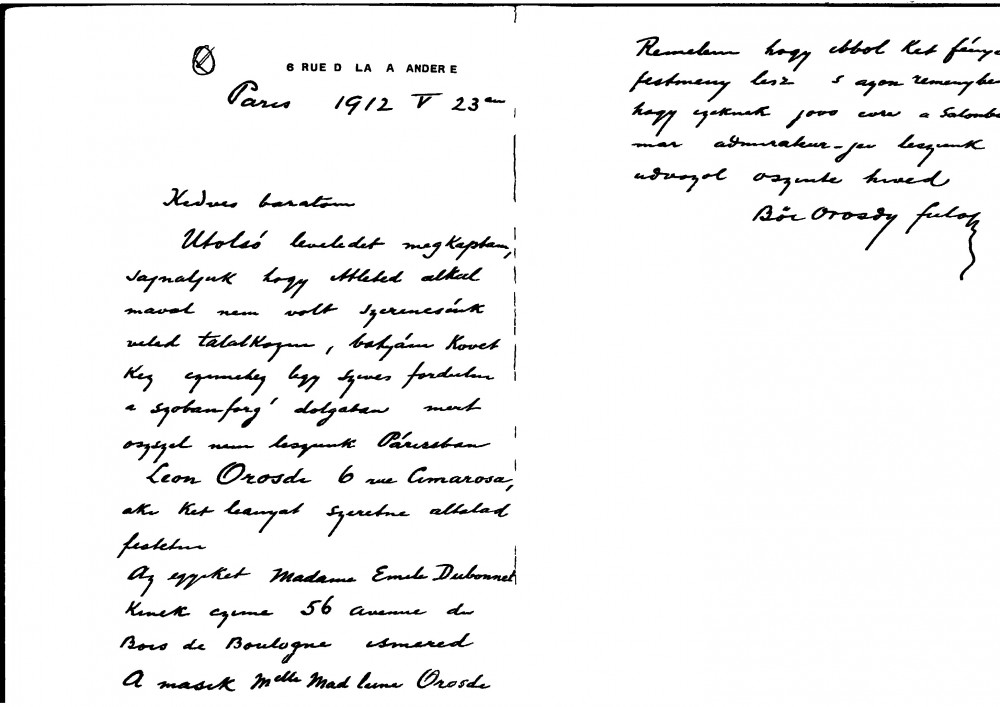 6 RUE D LA A ANDER E
Paris 1912 V 23 an
Kedves baratom
Utolsó leveledet megkaptam,
sajnaljuk hogy itteled alkal
maval nem volt szerencsénk
veled talalkozni, bátyám Kovet
Kez czimehez légy szives fordulni
a szobanforg' dolgaban mert
oszszel nem leszunk Párisban
Leon Orosdi 6 rue Cimarosa,
aki Ket leanyat szeretne altalad
festetni
Az egyiket Madame Emile Dubonnet
Kinek czime 56 avenue du
Bois de Boulogne ismered
A masik Melle Madleine Orosdi
Remelem hogy ebbol Ket fénye
festmeny lesz s azon remenybe
hogy ezeknek jovo evre a Salonba
mar admirateur-jei leszunk
udvozol oszinte hived
Bőc Orosdy fulop